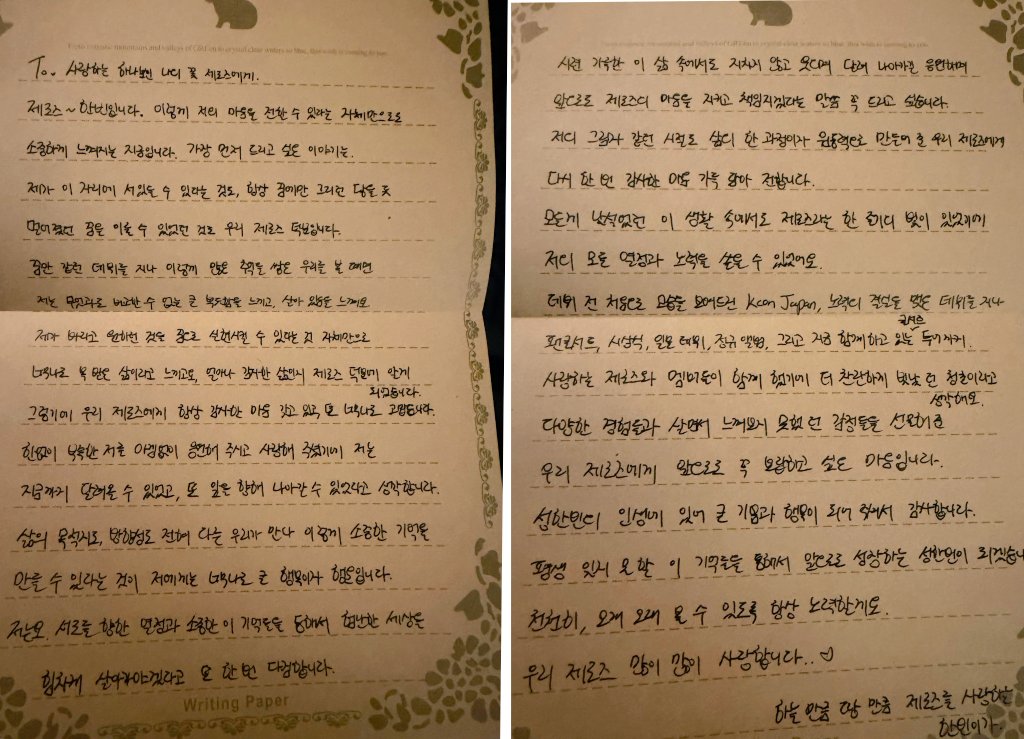 To. 사랑하는 하나뿐인 나의 꽃 제로즈에게.
제로즈~ 한빈입니다. 이렇게 저의 마음을 전할 수 있다는 자체만으로도
소중하게 느껴지는 지금입니다. 가장 먼저 드리고 싶은 이야기는.
제가 이 자리에 서있을 수 있다는 것도, 항상 꿈에만 그리던 닿을 듯
멀어졌던 꿈을 이룰 수 있었던 것도 우리 제로즈 덕분입니다.
꿈만 같던 데뷔를 지나 이렇게 많은 추억들을 쌓은 우리를 볼 때면
저는 무엇과도 비교할 수 없는 큰 복도함을 느끼고, 살아 있음을 느껴요
제가 바라고 원하던 것을 꿈으로 실현시킬 수 있다는 것 자체만으로
너무나도 복 받은 삶이라고 느끼고요, 얼마나 감사한 삶인지 제로즈 덕분에 알게
되었습니다.
그렇기에 우리 제로즈에게 항상 감사한 마음 갖고 있고, 또 너무나도 고맙습니다.
한없이 부족한 저를 아낌없이 응원해 주시고 사랑해 주셨기에 저는
지금까지 달려올 수 있었고, 또 앞을 향해 나아갈 수 있었다고 생각합니다.
삶의 목적지도, 방향성도 전혀 다른 우리가 만나 이렇게 소중한 기억을
만들 수 있다는 것이 저에게는 너무나도 큰 행복이자 행운입니다.
저는요. 서로를 향한 열정과 소중한 이 기억들을 통해서 험난한 세상을
힘차게 살아가야겠다고 또 한 번 다짐합니다.
Writing Paper
시련 가득한 이 삶 속에서도 지치지 않고 웃으며 달려 나아가길 응원하며
앞으로도 제로즈의 마음을 지키고 책임지겠다는 말씀 꼭 드리고 싶습니다.
저의 그림자 같던 시절도 삶의 한 과정이자 원동력으로 만들어 준 우리 제로즈에게
다시 한 번 감사한 마음 가득 담아 전합니다.
모든게 낯설었던 이 생활 속에서도 제로즈라는 한 줄기의 빛이 있었기에
저의 모든 열정과 노력을 쏟을 수 있었어요.
데뷔 전 처음으로 모습을 보여드린 Kcon Japan, 노력의 결실을 맺은 데뷔를 지나
팬콘서트, 시상식, 일본 데뷔, 정규 앨범, 그리고 지금 함께하고 있는 콘서트 투어까지.
사랑하는 제로즈와 멤버들이 함께 했기에 더 찬란하게 빛났던 청춘이라고
생각해요.
다양한 경험들과 살면서 느껴보지 못했던 감정들을 선물해준
우리 제로즈에게 앞으로도 꼭 보답하고 싶은 마음입니다.
성한빈의 인생에 있어 큰 기쁨과 행복이 되어 주셔서 감사합니다.
평생 잊지 못할 이 기억들을 통해서 앞으로도 성장하는 성한빈이 되겠습니
천천히, 오래 오래 볼 수 있도록 항상 노력할게요.
우리 제로즈 많이 많이 사랑합니다..♡
하늘 만큼 땅 만큼 제로즈를 사랑하는
한빈이가.